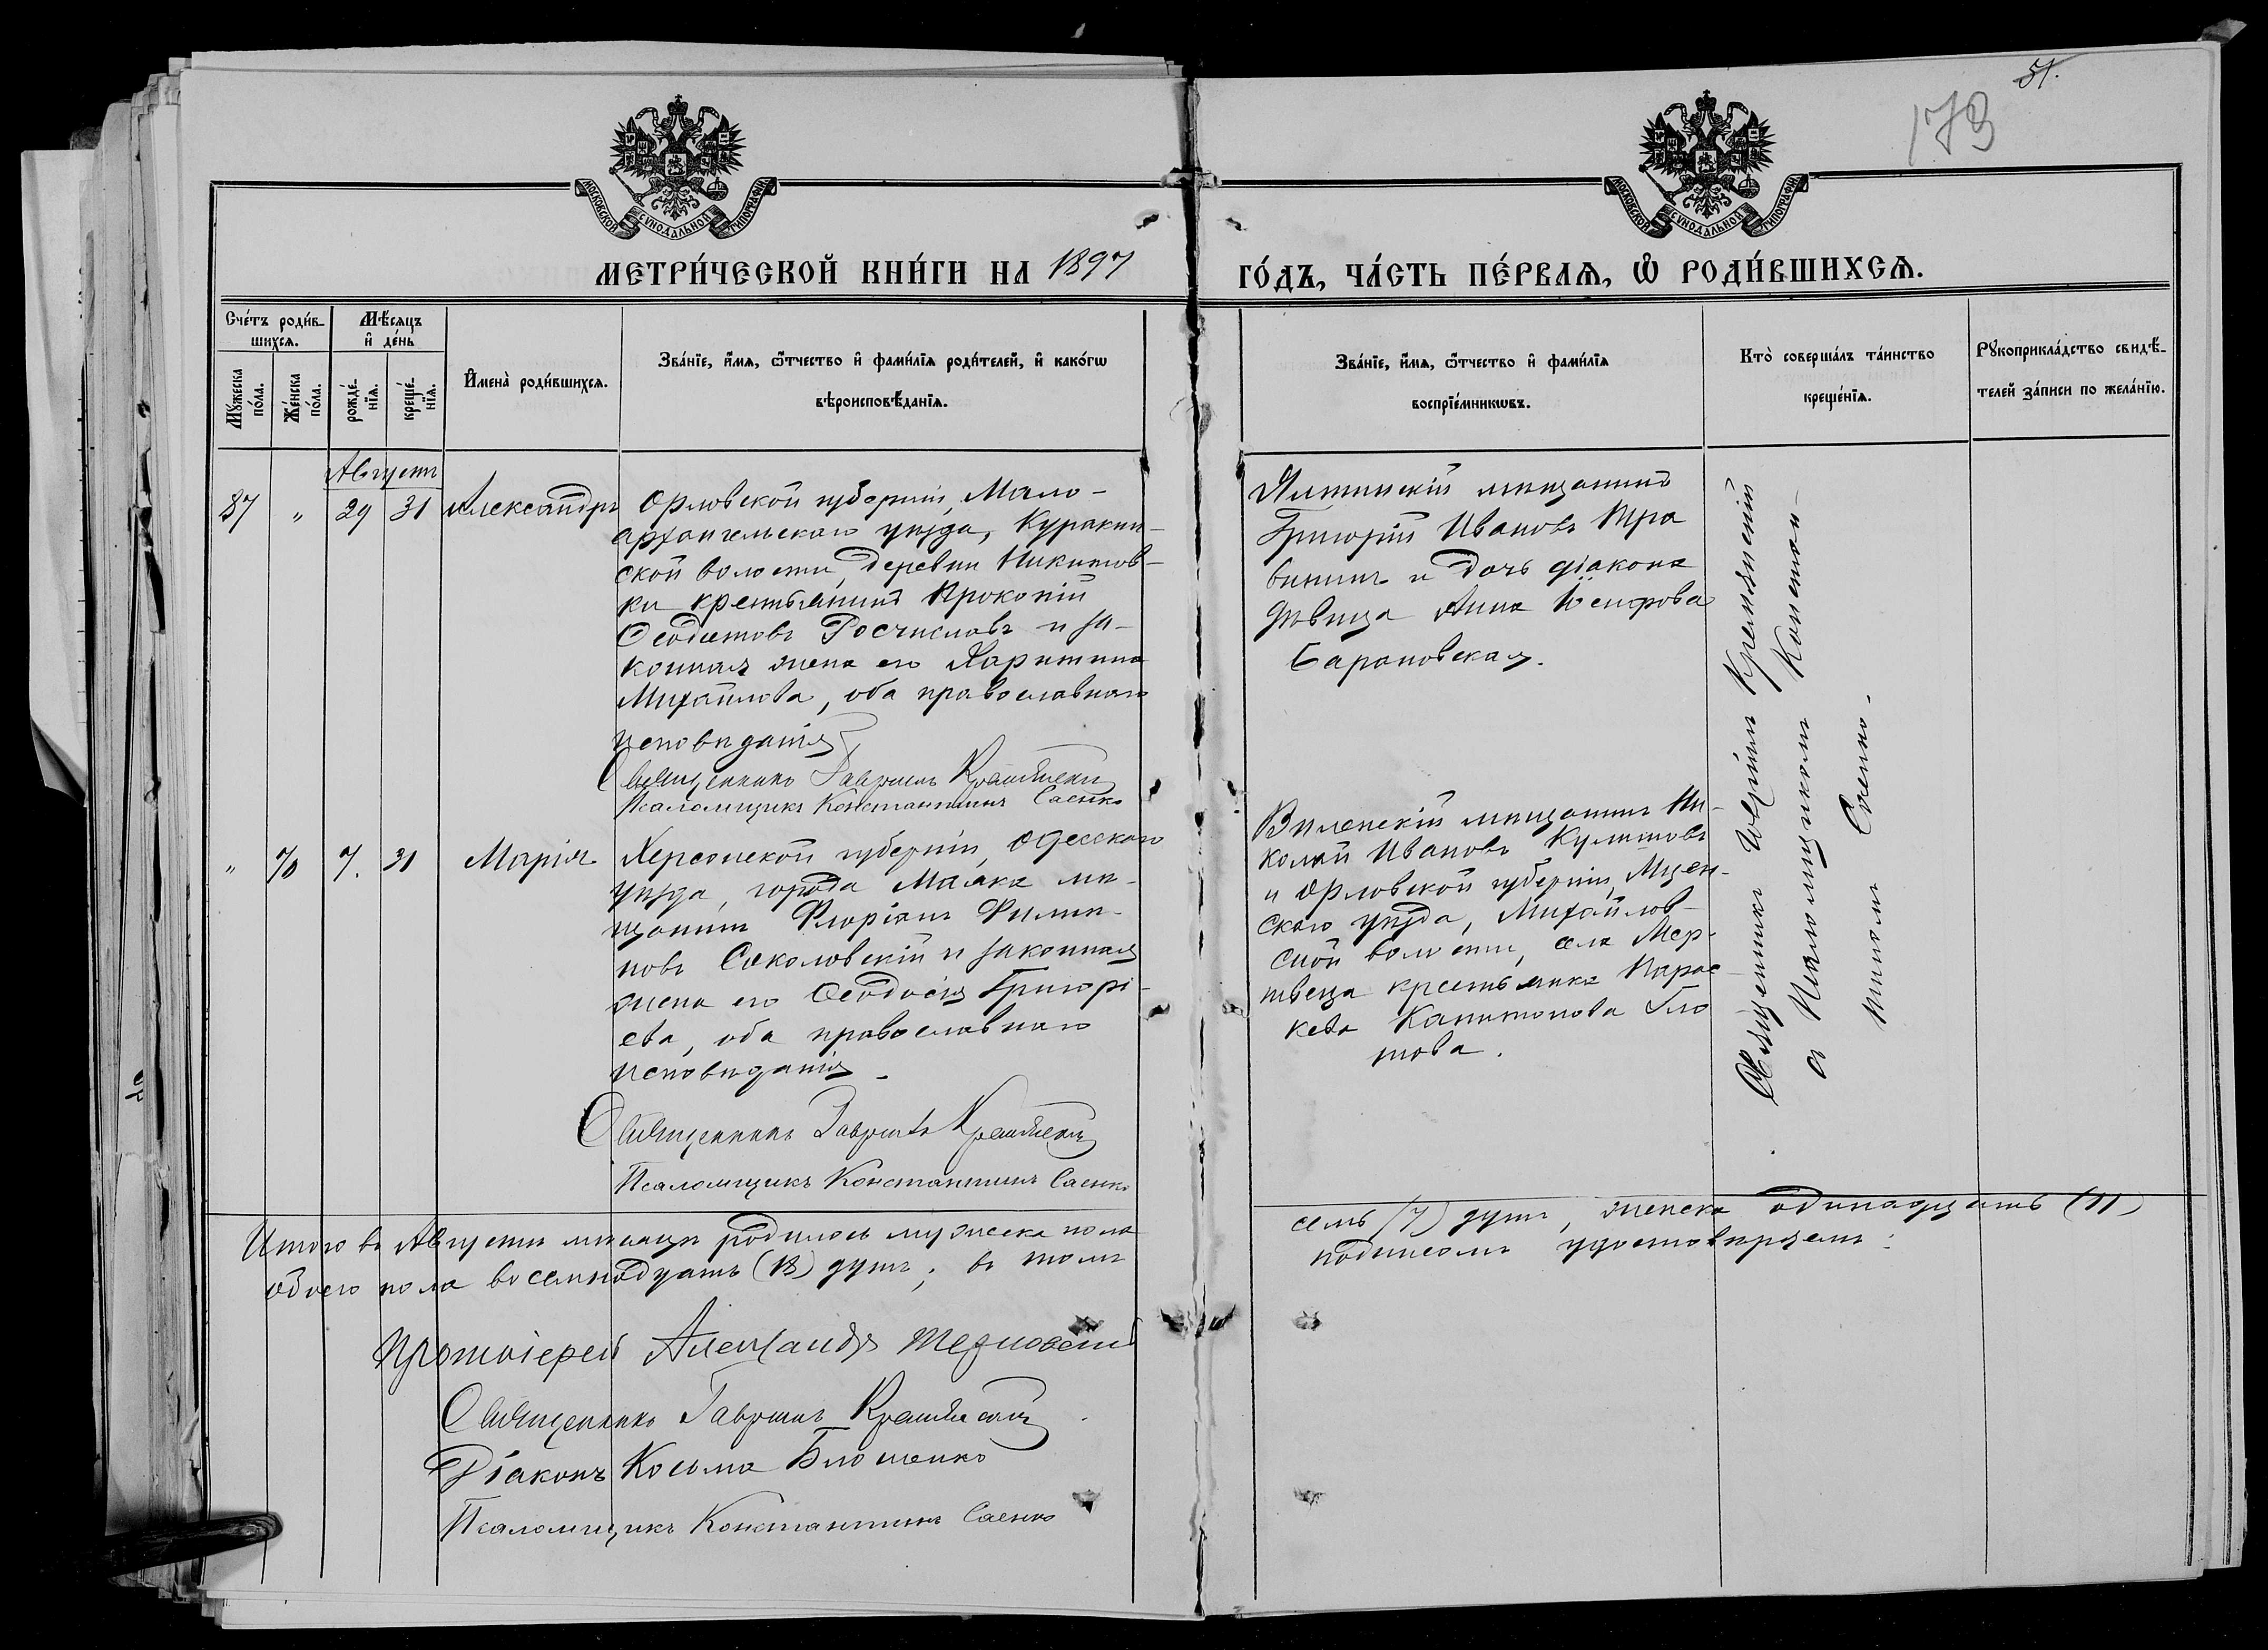 51.
173
МОСКОВСКОЙ СѴНОДАЛЬНОЙ ТИПОГРАФІИ
МОСКОВСКОЙ СѴНОДАЛЬНОЙ ТИПОГРАФІИ
МЕТРИ́ЧЕСКОЙ КНИ́ГИ НА 1897 ГО́ДЪ, ЧА́СТЬ ПЕ́РВАѦ, Ѿ РОДИ́ВШИХСѦ.
Сче́тъ роди́в-
шихсѧ.
Мѣ́сѧцъ
и де́нь
Мꙋ́жеска
по́ла.
Же́нска
по́ла.
рожде́-
нїѧ.
креще́-
нїѧ.
Имена̀ роди́вшихсѧ.
Зва́нїе, и́мѧ, ѻ́тчество и фами́лїѧ роди́телей, и како́гѡ
вѣроисповѣ́данїѧ.
Зва́нїе, и́мѧ, ѻ́тчество и фами́лїѧ
воспрїе́мникѡвъ.
Кто̀ соверша́лъ та́инство
креще́нїѧ.
Рꙋкоприкла́дство свидѣ́-
телей за́писи по жела́нїю.
Августъ
87 „ 29 31 Александръ
Орловской губерніи, Мало-
архангельскаго уѣзда, Куракин-
ской волости, деревни Никитов-
ки крестьянинъ Прокопій
Ѳеодотовъ Росчисловъ и за-
конная жена его Харитина
Михайлова, оба православнаго
исповѣданія
Священникъ Гавріилъ
Псаломщикъ Константинъ Саенко
Ялтинскій мѣщанинъ
Григорій Ивановъ Тра
винин и дочь діакона
дѣвица Анна Іосифова
Барановская.
„ 70 7. 31 Марія
Херсонской губерніи, Одесскаго
уѣзда, города Маяка мѣ-
щанинъ Флоріанъ Филип-
повъ Соколовскій и законная
жена его Ѳеодосія Григорі-
ева, оба православнаго
исповѣданія
Священникъ Гавріилъ
Псаломщикъ Константинъ Саенко
Виленскій мѣщанинъ Ни-
колай Ивановъ
и Орловской губерніи, Мцен-
скаго уѣзда, Михайлов-
ской волости, села Мер-
твеца крестьянка Парас-
кева Капитонова Гло
това.
Священникъ Гавріилъ
съ Псаломщикомъ Констан-
тиномъ Саенко.
Итого въ Августѣ мѣсяцѣ родилось мужеска пола семь (7) душъ, женска одинадцать (11)
обоего пола восемнадцать (18) душъ; въ томъ подписомъ удостовѣряемъ:
Протоіерей Александръ Терновскій
Священникъ Гавріилъ
Діаконъ Косьма Блошенко
Псаломщикъ Константинъ Саенко